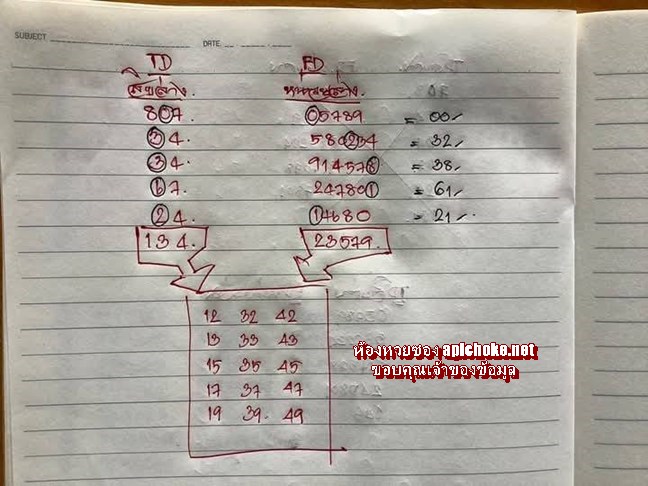 SUBJECT DATE
TD FD
สิบล่าง. หน่วยล่าง.
807 05789 = 00
34. 580234 = 32
34. 914578 = 38
67. 247801 = 61
24. 14680 = 21
134. 23579.
12 32 42
13 33 43
15 35 45
17 37 47
19 39. 49
ห้องหวยซอง apichoke.net
ขอบคุณเจ้าของข้อมูล